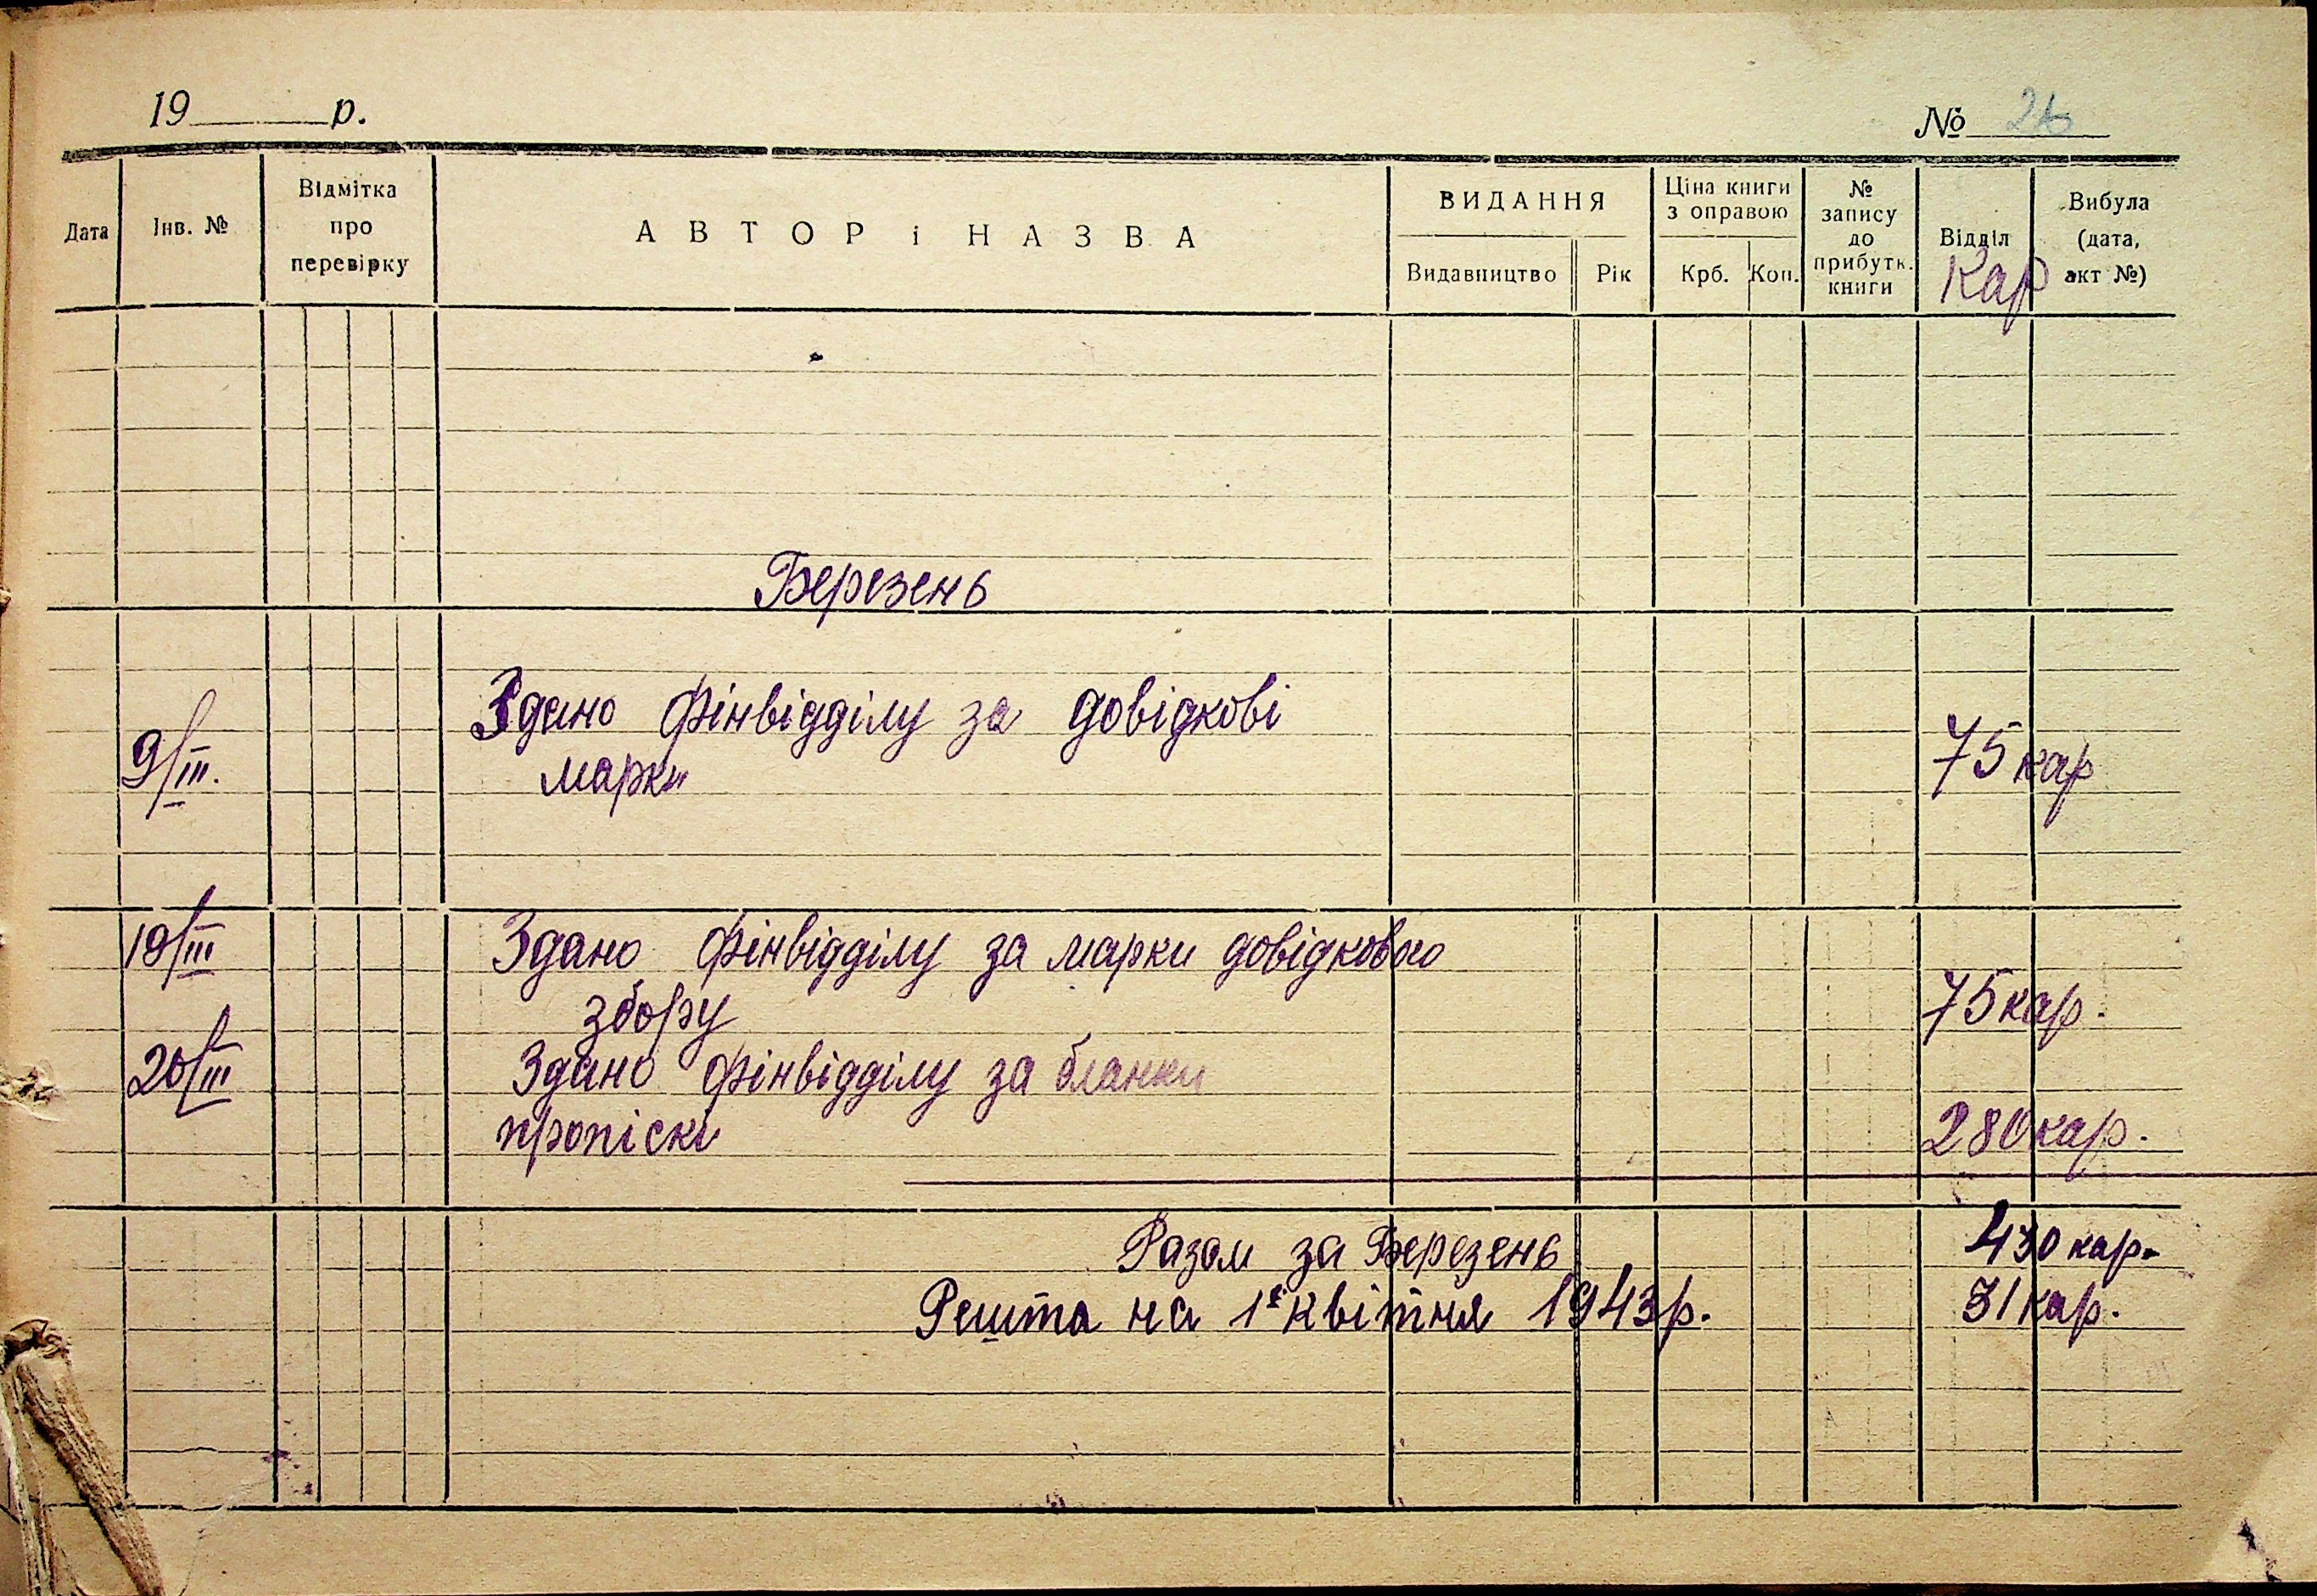 19 р.
№ 26
Дата
Інв. №
Відмітка
про
перевірку
АВТОР і НАЗВА
ВИДАННЯ
Видавництво
Рік
Ціна книги
з оправою
Крб.
Коп.
№
запису
до
прибутк.
книги
Відділ
Кар
Вибула
(дата,
акт №)
Березень
Здано фінвідділу за довідкові
9/III.
марки
75 кар
19/III Здано фінвідділу за марки довідкового
збору
75 кар.
20/III Здано фінвідділу за бланки
пропіскі
280 кар.
Разом за Березень 430 кар.
Решта на 1е квітня 1943 р. 31 кар.